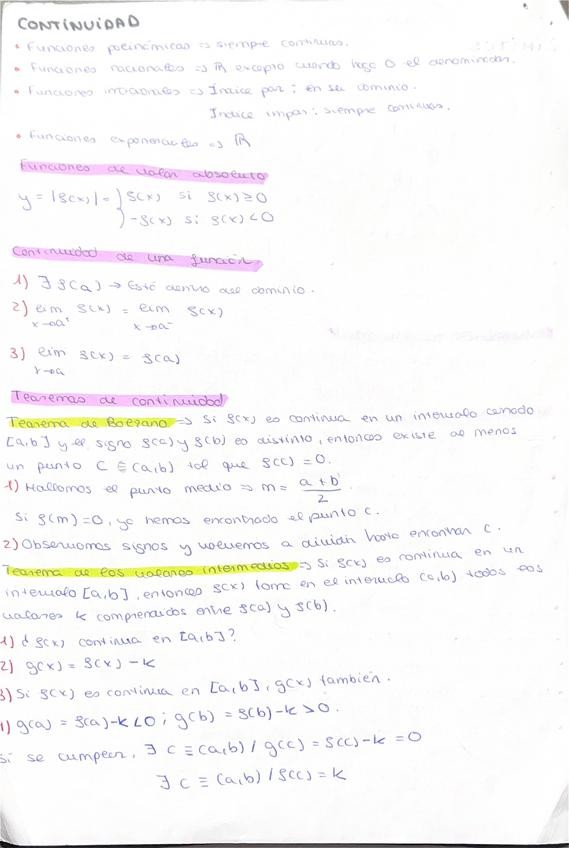 CONTINUIDAD
• Funciones polinómicas => siempre continuas.
• Funciones racionales => ℝ excepto cuando hago 0 el denominador.
• Funciones irracionales => Índice par: en su dominio.
Índice impar: siempre continuas.
• Funciones exponenciales => ℝ
Funciones de valor absoluto
y = |f(x)| = } f(x) si f(x) ≥ 0
} -f(x) si f(x) < 0
Continuidad de una función
1) ∃ f(a) → Está dentro del dominio.
2) lim f(x) = lim f(x)
x→a⁺ x→a⁻
3) lim f(x) = f(a)
x→a
Teoremas de continuidad
Teorema de Bolzano => Si f(x) es continua en un intervalo cerrado
[a,b] y el signo f(a) y f(b) es distinto, entonces existe al menos
un punto C ≡ (a,b) tal que f(c) = 0.
1) Hallamos el punto medio => m = (a + b)/2
Si f(m) = 0, ya hemos encontrado el punto c.
2) Observamos signos y volvemos a dividir hasta encontrar c.
Teorema de los valores intermedios => Si f(x) es continua en un
intervalo [a,b], entonces f(x) toma en el intervalo (a,b) todos los
valores k comprendidos entre f(a) y f(b).
1) ¿f(x) continua en [a,b]?
2) g(x) = f(x) - k
3) Si f(x) es continua en [a,b], g(x) también.
1) g(a) = f(a) - k < 0 ; g(b) = f(b) - k > 0.
Si se cumplen, ∃ c ≡ (a,b) / g(c) = f(c) - k = 0
∃ c ≡ (a,b) / f(c) = k